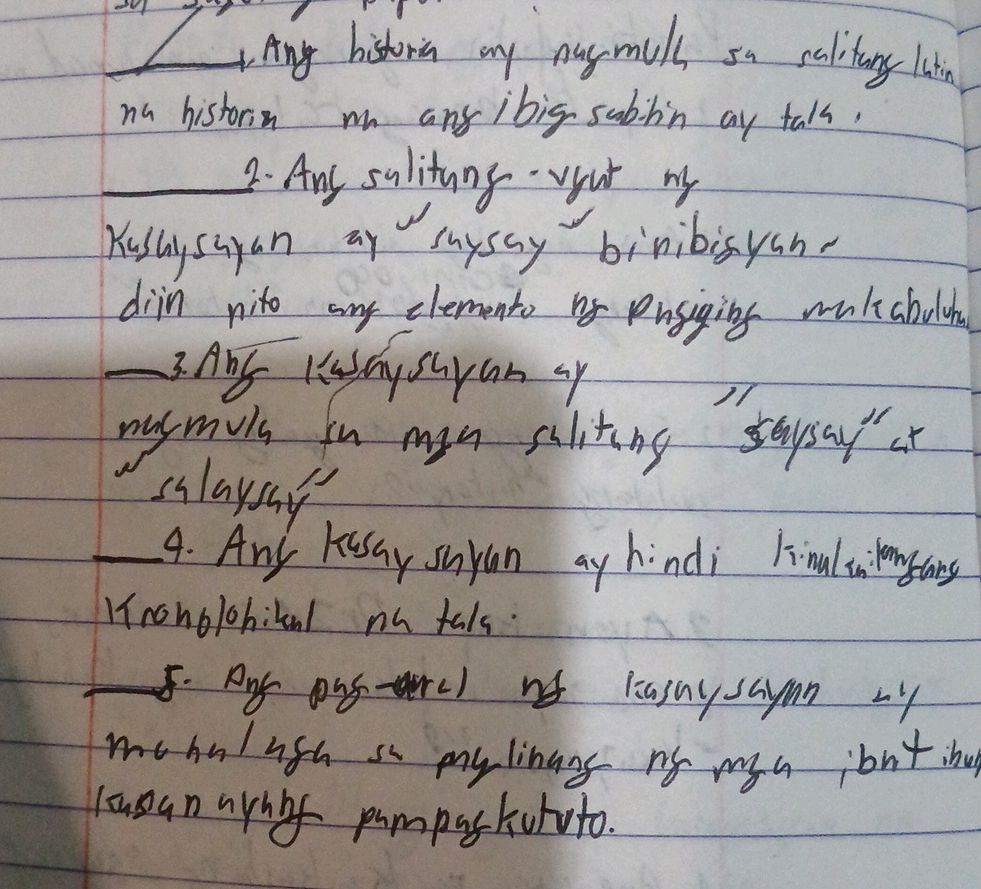 1. Ang historia ay nagmula sa salitang latin
na historia na ang ibig sabihin ay tala.
2. Ang salitang-ugat ng
Kasaysayan ay "saysay" binibigyan-
diin nito ang elemento ng pagiging makabuluha
3. Ang Kasaysayan ay
nagmula sa mga salitang "saysay" at
"salaysay"
4. Ang kasaysayan ay hindi
Kronolohikal na tala.
5. Ang pag-aral ng kasaysayan ay
mahalaga sa paglinang ng mga ibat ibang
kasanayang pampagkatuto.